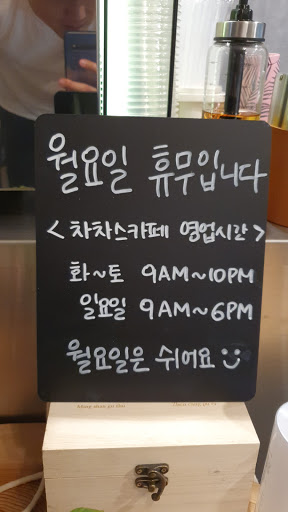 월요일 휴무입니다
< 차차스카페 영업시간 >
화~토 9AM~10PM
일요일 9AM~6PM
월요일은 쉬어요